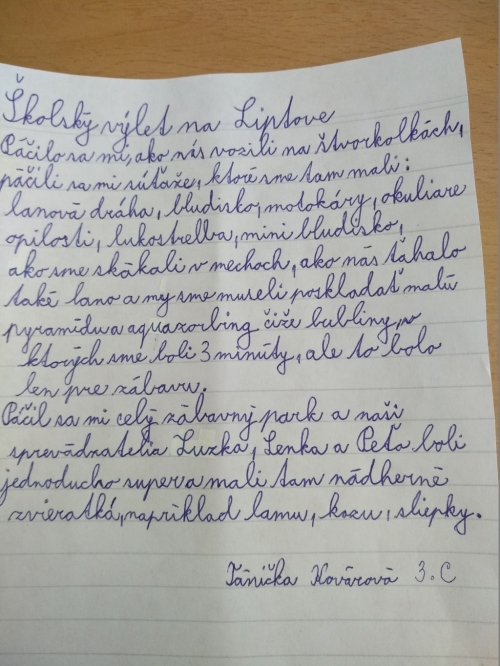 Školský výlet na Liptove
Páčilo sa mi, ako nás vozili na štvorkolkách,
páčili sa mi súťaže, ktoré sme tam mali:
lanová dráha, bludisko, motokáry, okuliare
opilosti, lukostrelba, mini bludisko,
ako sme skákali v mechoch, ako nás ťahalo
také lano a my sme museli poskladať malú
pyramídu a aquazorbing čiže bubliny, v
ktorých sme boli 3 minúty, ale to bolo
len pre zábavu.
Páčil sa mi celý zábavný park a naši
sprevádzatelia Luzka, Lenka a Peťa boli
jednoducho super a mali tam nádherné
zvieratká, napríklad lamu, kozu, sliepky.
Tánička Kovárová 3. C